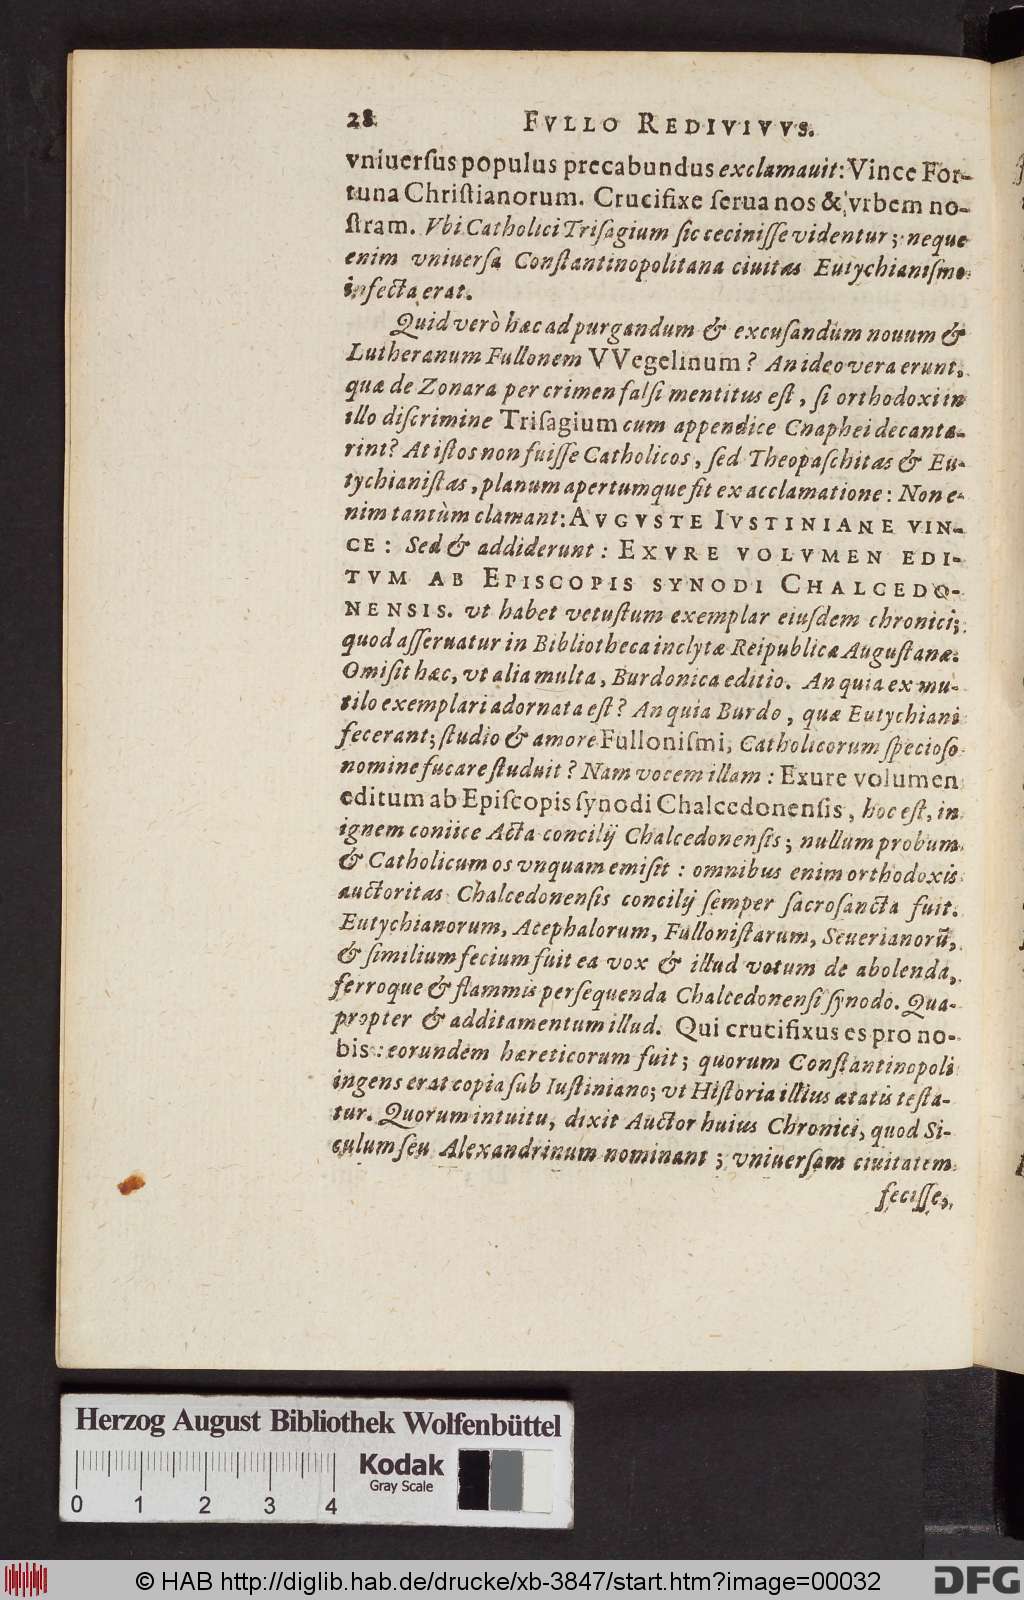 28 FVLLO REDIVIVVS.
vniuerſus populus precabundus exclamauit: Vince For-
tuna Chriſtianorum. Crucifixe ſerua nos & vrbem no-
ſtram. Vbi Catholici Triſagium ſic ceciniſſe videntur; neque
enim vniuerſa Conſtantinopolitana ciuitas Eutychianiſmo
infecta erat.
Quid verò hæc ad purgandum & excuſandum nouum &
Lutheranum Fullonem VVegelinum? An ideo vera erunt,
quæ de Zonara per crimen falſi mentitus eſt, ſi orthodoxi in
illo diſcrimine Triſagium cum appendice Cnaphei decanta-
rint? At iſtos non fuiſſe Catholicos, ſed Theopaſchitas & Eu-
tychianiſtas, planum apertumque fit ex acclamatione: Non e-
nim tantùm clamant: AVGVSTE IVSTINIANE VIN-
CE: Sed & addiderunt: EXVRE VOLVMEN EDI-
TVM AB EPISCOPIS SYNODI CHALCEDO-
NENSIS. vt habet vetuſtum exemplar eiuſdem chronici;
quod aſſeruatur in Bibliotheca inclytæ Reipublicæ Auguſtanæ.
Omiſit hæc, vt alia multa, Burdonica editio. An quia ex mu-
tilo exemplari adornata eſt? An quia Burdo, quæ Eutychiani
fecerant; ſtudio & amore Fulloniſmi, Catholicorum ſpecioſo
nomine fucare ſtuduit? Nam vocem illam: Exure volumen
editum ab Epiſcopis ſynodi Chalcedonenſis, hoc eſt, in
ignem coniice Acta concilij Chalcedonenſis; nullum probum
& Catholicum os vnquam emiſit: omnibus enim orthodoxis
auctoritas Chalcedonenſis concilij ſemper ſacroſancta fuit.
Eutychianorum, Acephalorum, Fulloniſtarum, Seuerianorū,
& ſimilium fecium fuit ea vox & illud votum de abolenda,
ferroque & flammis perſequenda Chalcedonenſi ſynodo. Qua-
propter & additamentum illud. Qui crucifixus es pro no-
bis: eorundem hæreticorum fuit; quorum Conſtantinopoli
ingens erat copia ſub Iuſtiniano; vt Hiſtoria illius ætatis teſta-
tur. Quorum intuitu, dixit Auctor huius Chronici, quod Si-
culum ſeu Alexandrinum nominant; vniuerſam ciuitatem
feciſſe,
Herzog August Bibliothek Wolfenbüttel
0 1 2 3 4
Kodak
Gray Scale
© HAB http://diglib.hab.de/drucke/xb-3847/start.htm?image=00032
DFG